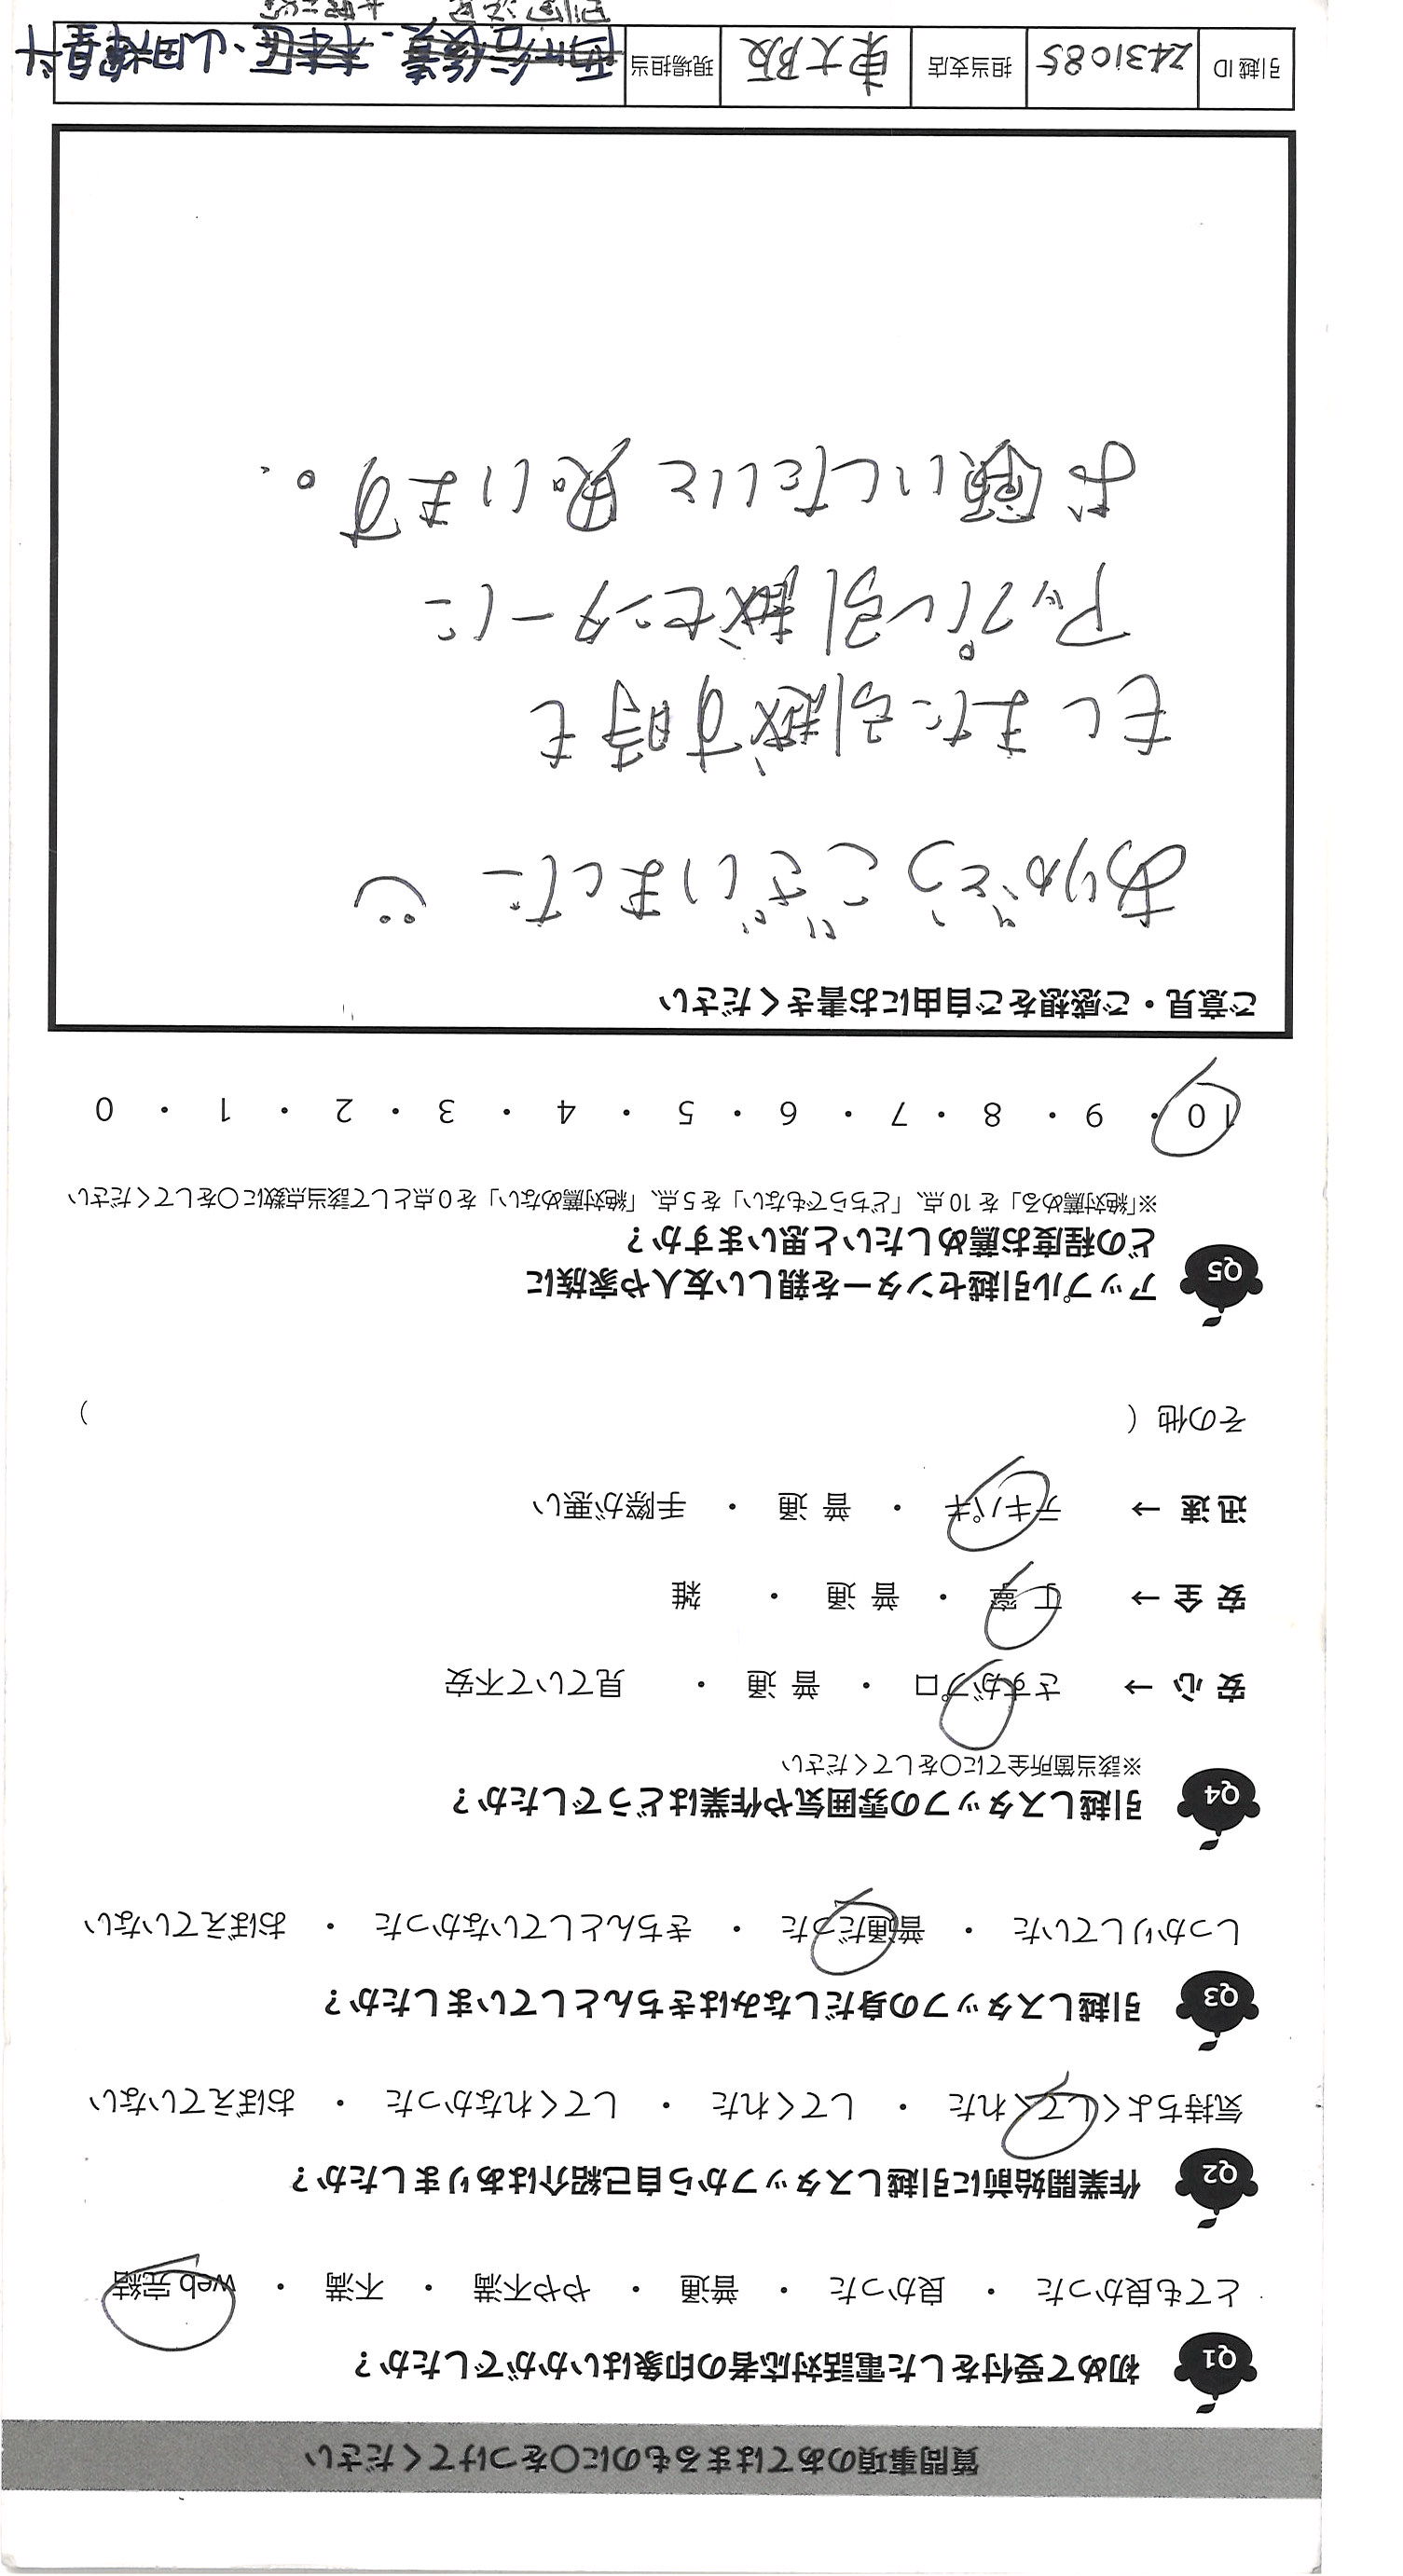 質問事項のあてはまるものに○をつけてください
Q1 初めて受付をした電話対応者の印象はいかがでしたか？
とても良かった ・ 良かった ・ 普通 ・ やや不満 ・ 不満 ・ web 完結
Q2 作業開始前に引越しスタッフから自己紹介はありましたか？
気持ちよくしてくれた ・ してくれた ・ してくれなかった ・ おぼえていない
Q3 引越しスタッフの身だしなみはきちんとしていましたか？
しっかりしていた ・ 普通だった ・ きちんとしていなかった ・ おぼえていない
Q4 引越しスタッフの雰囲気や作業はどうでしたか？
※該当箇所全てに○をしてください
安 心 → さすがプロ ・ 普 通 ・ 見ていて不安
安 全 → 丁 寧 ・ 普 通 ・ 雑
迅 速 → テキパキ ・ 普 通 ・ 手際が悪い
その他（ ）
Q5 アップル引越センターを親しい友人や家族に
どの程度お薦めしたいと思いますか？
※「絶対薦める」を 10 点、「どちらでもない」を 5 点、「絶対薦めない」を 0 点として該当点数に○をしてください
10 ・ 9 ・ 8 ・ 7 ・ 6 ・ 5 ・ 4 ・ 3 ・ 2 ・ 1 ・ 0
ご意見・ご感想をご自由にお書きください
ありがとうございました
もしまた引越す時も
アップル引越センターに
お願いしたいと思います。
引越 ID 2431085 担当支店 東大阪 現場担当 山田